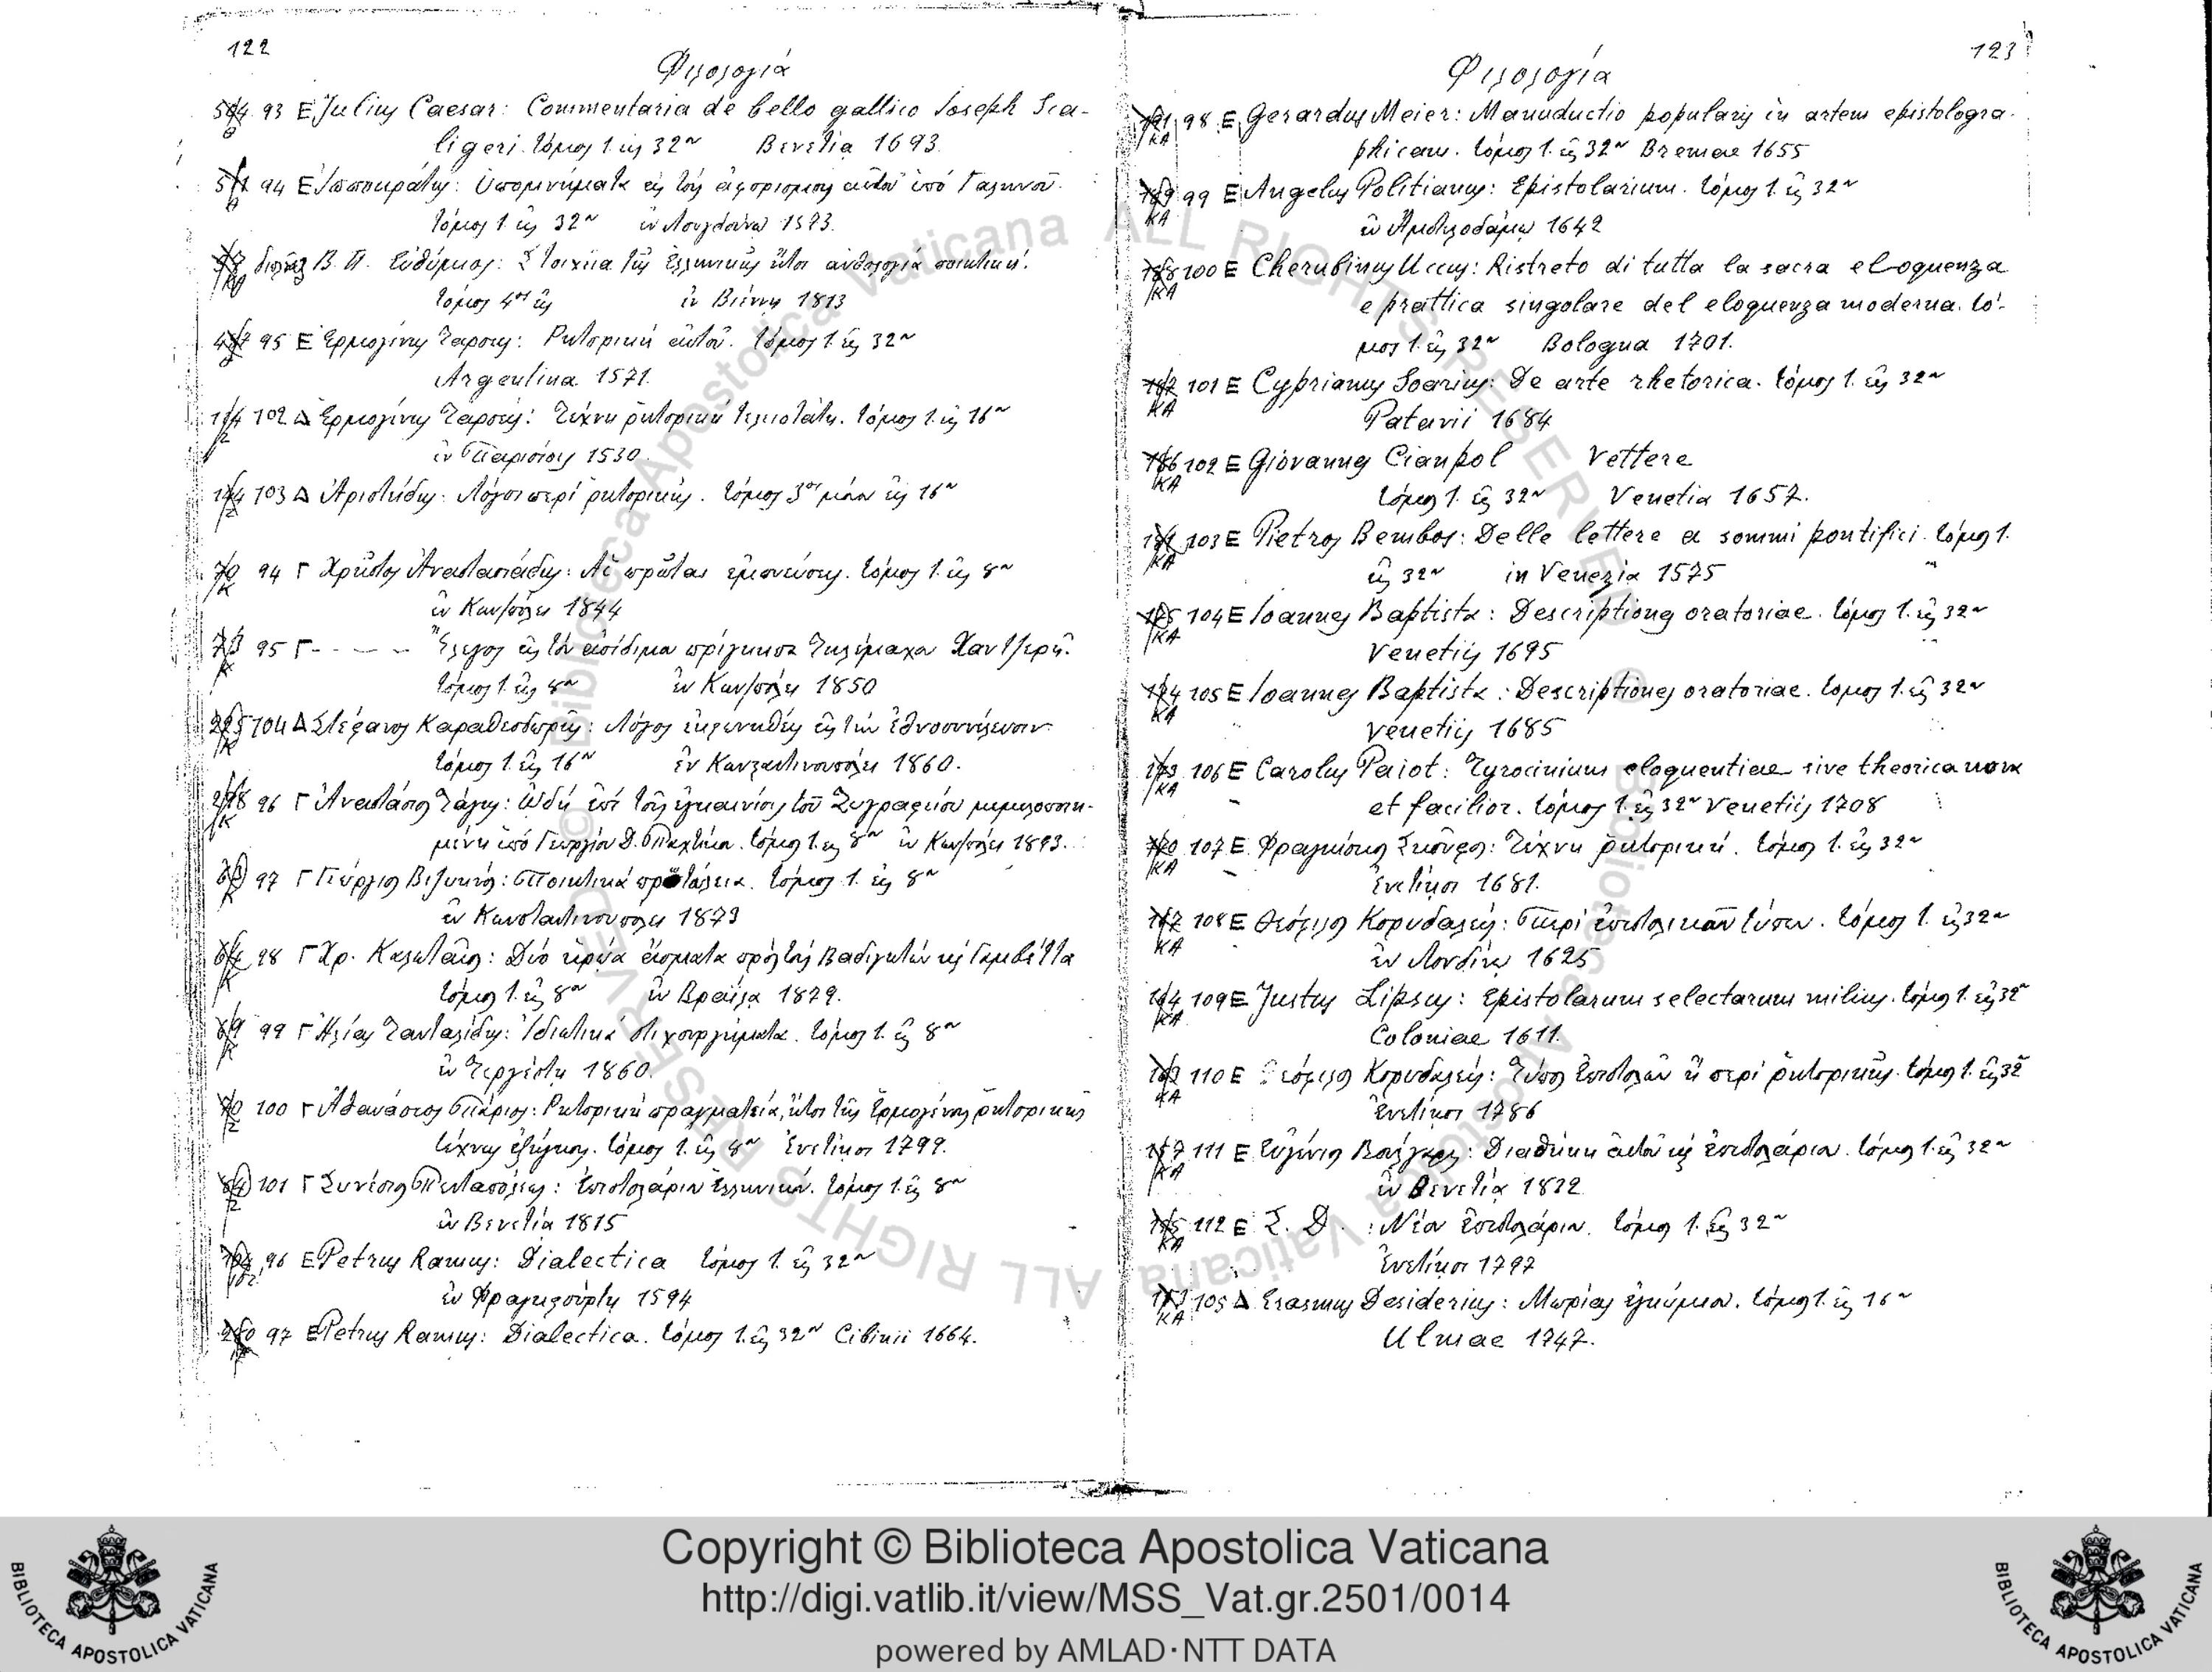 122
Φιλολογία
93 Ε Julius Caesar: Commentaria de bello gallico Joseph Sca-
ligeri. τόμος 1. εἰς 32ον Βενετία 1693.
94 Ε Ἱπποκράτης: Ὑπομνήματα εἰς τοὺς ἀφορισμοὺς αὐτοῦ ὑπό Γαληνοῦ.
τόμος 1. εἰς 32ον ἐν Λουγδούνῳ
Β. Π. Εὐθύμιος: Στοιχεῖα τῆς ἑλληνικῆς ἤτοι ἀνθολογία ποιητική.
τόμος 4ος εἰς ἐν Βιέννῃ 1813
95 Ε Ἑρμογένης Ταρσεύς: Ρητορική αὐτοῦ. τόμος 1. εἰς 32ον
Argentina 1571.
102 Δ Ἑρμογένης Ταρσεύς: Τέχνη ῥητορική τελειοτάτη. τόμος 1. εἰς 16ον
ἐν Παρισίοις 1530.
103 Δ Ἀριστείδης: Λόγοι περί ῥητορικῆς. τόμος 3ος μόνον εἰς 16ον
94 Γ Χρῆστος Ἀναστασιάδης: Αἱ πρῶται ἐμπνεύσεις. τόμος 1. εἰς 8ον
ἐν Κων/πόλει 1844
95 Γ - - - - Ἔλεγος εἰς τὸν ἀοίδιμον πρίγκηπα Τηλέμαχον Χαντζερῆ.
τόμος 1. εἰς 8ον ἐν Κων/πόλει 1850
104 Δ Στέφανος Καραθεοδωρῆς: Λόγος ἐκφωνηθείς εἰς τὴν ἐθνοσυνέλευσιν
τόμος 1. εἰς 16ον ἐν Κωνσταντινουπόλει 1860.
96 Γ Ἀναστάσιος Τάγης: ᾨδή ἐπί τοῖς ἐγκαινίοις τοῦ Ζωγραφείου μεμελοποιη-
μένη ὑπό Γεωργίου Δ. Παχτίκου. τόμος 1. εἰς 8ον ἐν Κων/πόλει 1893.
97 Γ Γεώργιος Βιζυηνός: Ποιητικά πρωτόλεια. τόμος 1. εἰς 8ον
ἐν Κωνσταντινουπόλει 1873
98 Γ Χρ. Δύο ἡρῷα ᾄσματα πρός τούς εἰς Γαμβέττα
τόμος 1. εἰς 8ον ἐν Βραΐλᾳ 1879.
99 Γ Ἠλίας Τανταλίδης: Ἰδιωτικά στιχουργήματα. τόμος 1. εἰς 8ον
ἐν Τεργέστῃ 1860.
100 Γ Ἀθανάσιος Πάριος: Ρητορική πραγματεία, ἤτοι τῆς Ἑρμογένους ῥητορικῆς
τέχνης ἐξήγησις. τόμος 1. εἰς 8ον Ἐνετίησι 1799.
101 Γ Συνέσιος Πενταπόλεως: ἐπιστολάριον ἑλληνικόν. τόμος 1. εἰς 8ον
ἐν Βενετία 1815
96 Ε Petrus Ramus: Dialectica τόμος 1. εἰς 32ον
ἐν Φραγκφούρτῃ 1594
97 Ε Petrus Ramus: Dialectica. τόμος 1. εἰς 32ον Cibinii 1664.
123
Φιλολογία
98 Ε Gerardus Meier: Manuductio popularis in artem epistologra-
phicam. τόμος 1. εἰς 32ον Bremae 1655
99 Ε Angelus Politianus: Epistolarium. τόμος 1. εἰς 32ον
ἐν Ἀμστελοδάμῳ 1642
100 Ε Cherubinus Uccus: Ristreto di tutta la sacra eloquenza
e prattica singolare del eloquenza moderna. τό-
μος 1. εἰς 32ον Bologna 1701.
101 Ε Cyprianus Soarius: De arte rhetorica. τόμος 1. εἰς 32ον
Patavii 1684
102 Ε Giovannes Ciampol Vettere
τόμος 1. εἰς 32ον Venetia 1657.
103 Ε Pietros Bembos: Delle lettere a sommi pontifici. τόμος 1.
εἰς 32ον in Venezia 1575
104 Ε Ioannes Baptista: Descriptiones oratoriae. τόμος 1. εἰς 32ον
Venetiis 1695
105 Ε Ioannes Baptista: Descriptiones oratoriae. τόμος 1. εἰς 32ον
Venetiis 1685
106 Ε Carolus Paiot: Tyrocinium eloquentiae sive theorica nova
et facilior. τόμος 1. εἰς 32ον Venetiis 1708
107 Ε Φραγκίσκος Σκοῦφος: Τέχνη ῥητορική. τόμος 1. εἰς 32ον
Ἐνετίησι 1681.
108 Ε Θεόφιλος Κορυδαλεύς: Περί ἐπιστολικῶν τύπων. τόμος 1. εἰς 32ον
ἐν Λονδίνῳ 1625
109 Ε Justus Lipsus: Epistolarum selectarum milius. τόμος 1. εἰς 32ον
Coloniae 1611.
110 Ε Θεόφιλος Κορυδαλεύς: Τύποι ἐπιστολῶν ἤ περί ῥητορικῆς. τόμος 1. εἰς 32ον
Ἐνετίησι 1786
111 Ε Εὐγένιος Βούλγαρις: Διαθήκη αὐτοῦ εἰς ἐπιστολάριον. τόμος 1. εἰς 32ον
ἐν Βενετίᾳ
112 Ε Σ. Δ. : Νέον ἐπιστολάριον. τόμος 1. εἰς 32ον
Ἐνετίησι 1797
105 Δ Erasmus Desiderius: Μωρίας ἐγκώμιον. τόμος 1. εἰς 16ον
Ulmae 1747.
© Biblioteca Apostolica Vaticana ALL RIGHTS RESERVED
Copyright © Biblioteca Apostolica Vaticana
http://digi.vatlib.it/view/MSS_Vat.gr.2501/0014
powered by AMLAD·NTT DATA
BIBLIOTECA APOSTOLICA VATICANA
BIBLIOTECA APOSTOLICA VATICANA